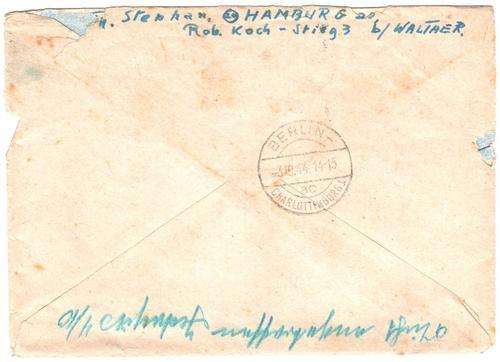 H. Stephan, 24 HAMBURG 20
Rob. Koch-Stieg 3 b/ WALTHER.
BERLIN-
-3.10.46.14-15
ac
CHARLOTTENBURG 2
Nicht angetroffen